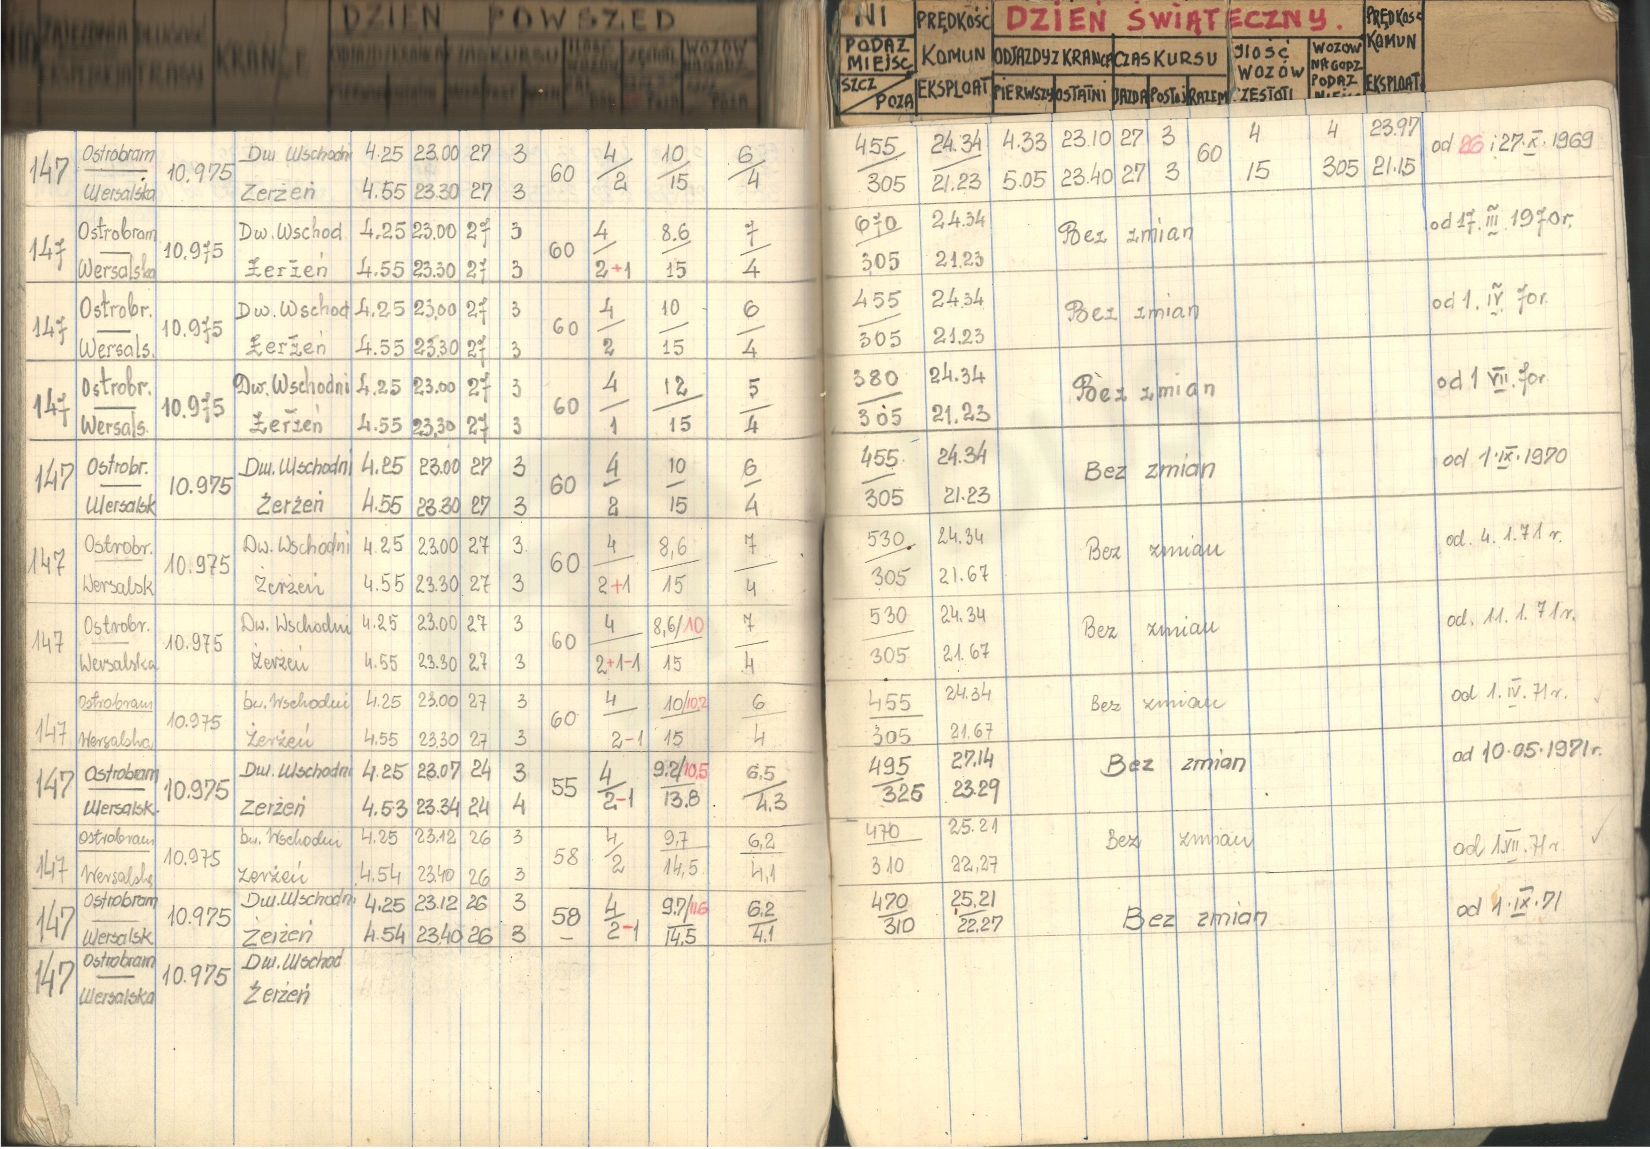 DZIEŃ POWSZED
ZAJEZDNIA DŁUGOŚĆ
KRAŃCE
EKSPLOATA TRASY
NI PRĘDKOŚĆ DZIEŃ ŚWIĄTECZNY. PRĘDKOŚ
PODAŻ MIEJSC KOMUN ODJAZDY Z KRAŃCA CZAS KURSU ILOŚĆ WOZÓW WOZÓW NA GODZ PODAŻ KOMUN
SZCZ POZA EKSPLOAT PIERWSZY OSTATNI JAZDA POSTÓJ RAZEM CZĘSTOTL EKSPLOAT
147 Ostrobram 10.975 Dw Wschodni 4.25 23.00 27 3 60 4 10 6 455 24.34 4.33 23.10 27 3 60 4 4 23.97 od 26 i 27.X.1969
Wersalska Zerżeń 4.55 23.30 27 3 2 15 4 305 21.23 5.05 23.40 27 3 15 305 21.15
147 Ostrobram 10.975 Dw. Wschod 4.25 23.00 27 3 60 4 8.6 7 670 24.34 Bez zmian od 17. III. 1970r.
Wersalska Żerżeń 4.55 23.30 27 3 2+1 15 4 305 21.23
147 Ostrobr. 10.975 Dw. Wschod 4.25 23.00 27 3 60 4 10 6 455 24.34 Bez zmian od 1. IV. 70r.
Wersals. Żerżeń 4.55 23.30 27 3 2 15 4 305 21.23
147 Ostrobr. 10.975 Dw. Wschodni 4.25 23.00 27 3 60 4 12 5 380 24.34 Bez zmian od 1 VII. 70r
Wersals. Żerżeń 4.55 23.30 27 3 1 15 4 305 21.23
147 Ostrobr. 10.975 Dw. Wschodni 4.25 23.00 27 3 60 4 10 6 455 24.34 Bez zmian od 1.IX.1970
Wersalsk Żerżeń 4.55 23.30 27 3 2 15 4 305 21.23
147 Ostrobr. 10.975 Dw. Wschodni 4.25 23.00 27 3 60 4 8,6 7 530 24.34 Bez zmian od. 4.1.71 r.
Wersalsk Żerżeń 4.55 23.30 27 3 2+1 15 4 305 21.67
147 Ostrobr. 10.975 Dw. Wschodni 4.25 23.00 27 3 60 4 8,6/10 7 530 24.34 Bez zmian od. 11.1.71r.
Wersalska Żerżeń 4.55 23.30 27 3 2+1-1 15 4 305 21.67
147 Ostrobram 10.975 Dw. Wschodni 4.25 23.00 27 3 60 4 10/10,2 6 455 24.34 Bez zmian od 1. IV. 71r.
Wersalska Żerżeń 4.55 23.30 27 3 2-1 15 4 305 21,67
147 Ostrobram 10.975 Dw. Wschodni 4.25 23.07 24 3 55 4 9.2/10,5 6,5 495 27.14 Bez zmian od 10.05.1971r.
Wersalsk. Zerżeń 4.53 23.34 24 4 2-1 13.8 4,3 325 23.29
147 Ostrobram 10.975 Dw. Wschodni 4.25 23.12 26 3 58 4 9,7 6,2 470 25.21 Bez zmian od 1.VII.71r
Wersalska Żerżeń 4.54 23.40 26 3 2 14,5 4,1 310 22,27
147 Ostrobram 10.975 Dw. Wschodni 4.25 23.12 26 3 58 4 9.7/11.6 6,2 470 25,21 Bez zmian od 1.IX.71
Wersalsk. Żerżeń 4.54 23.40 26 3 2-1 14,5 4,1 310 22.27
147 Ostrobram 10.975 Dw. Wschod
Wersalska Żerżeń